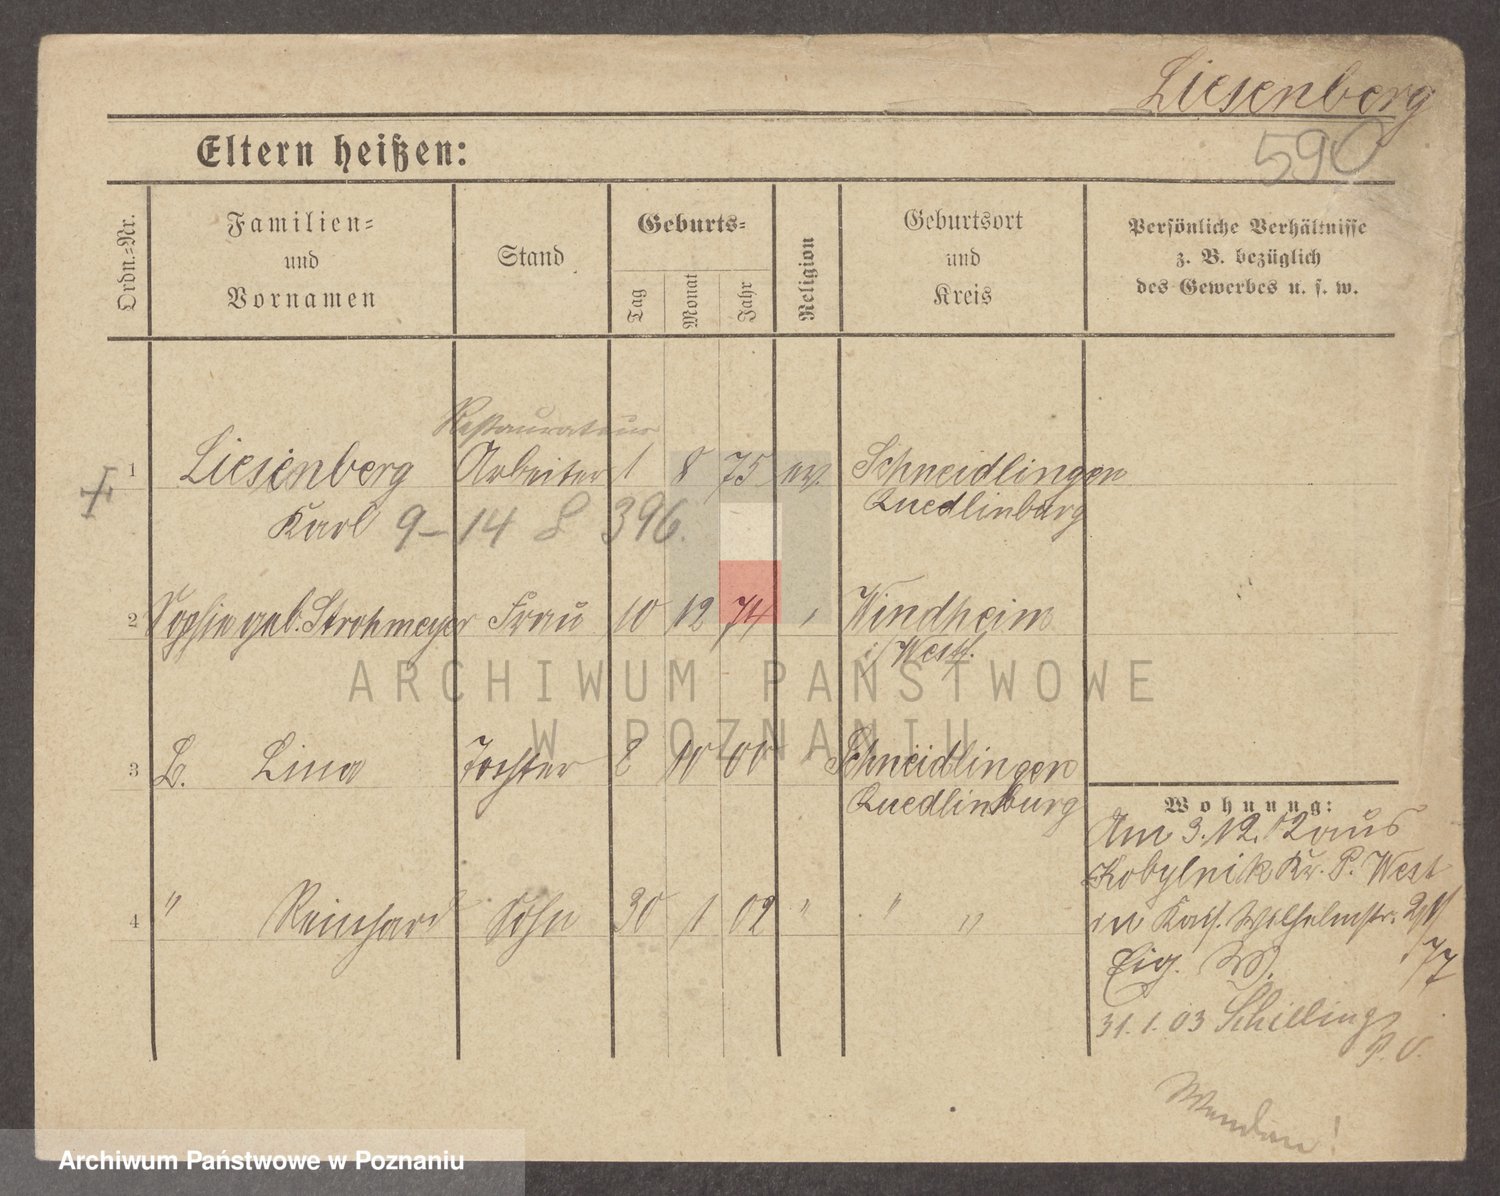 Liesenberg
590
Eltern heißen:
Ordn.-Nr.
Familien-
und
Vornamen
Stand
Geburts-
Tag
Monat
Jahr
Religion
Geburtsort
und
Kreis
Persönliche Verhältnisse
z. B. bezüglich
des Gewerbes u. s. w.
Restaurateur
1 Liesenberg Arbeiter 1 8 75 ev. Schneidlingen
Karl 9-14 396. Quedlinburg
2 Sophie geb. Strohmeyer Frau 10 12 74 Windheim
i/Westf.
ARCHIWUM PAŃSTWOWE
W POZNANIU
3 L. Lina Tochter 8 10 00 Schneidlingen
Quedlinburg
4 " Reinhard Sohn 30 1 02 " " "
Wohnung:
Am 3.12.02 aus
Kobylnik Kr. P. West
in Kais. Wilhelmstr.
Eig. W. 77
31.1.03 Schilling
Wenden!
Archiwum Państwowe w Poznaniu